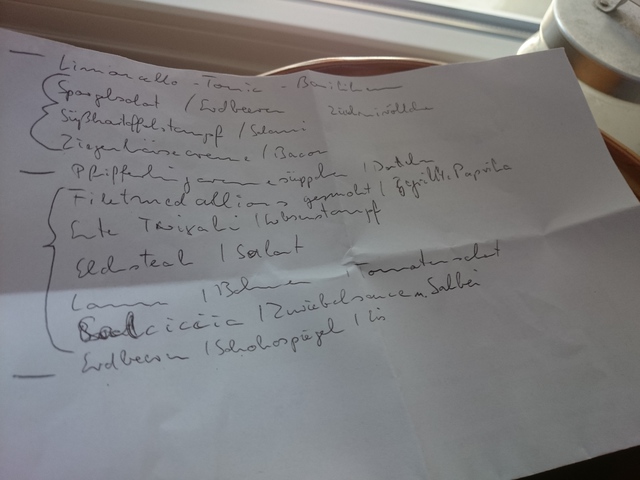 Limoncello - Tonic - Basilikum
Spargelsalat / Erdbeeren
Süßkartoffelstampf / Salami
Ziegenkäsecreme / Bacon
Pfifferlingcremesüppchen / Datteln
Filetmedallions gemacht / gegrillte Paprika
Ente Teriyaki / Erbsenstampf
Elchsteak / Salat
Lamm / Bohnen / Tomatensalat
Salciccia / Zwiebelsauce m. Salbei
Erdbeeren / Schokospiegel / Eis